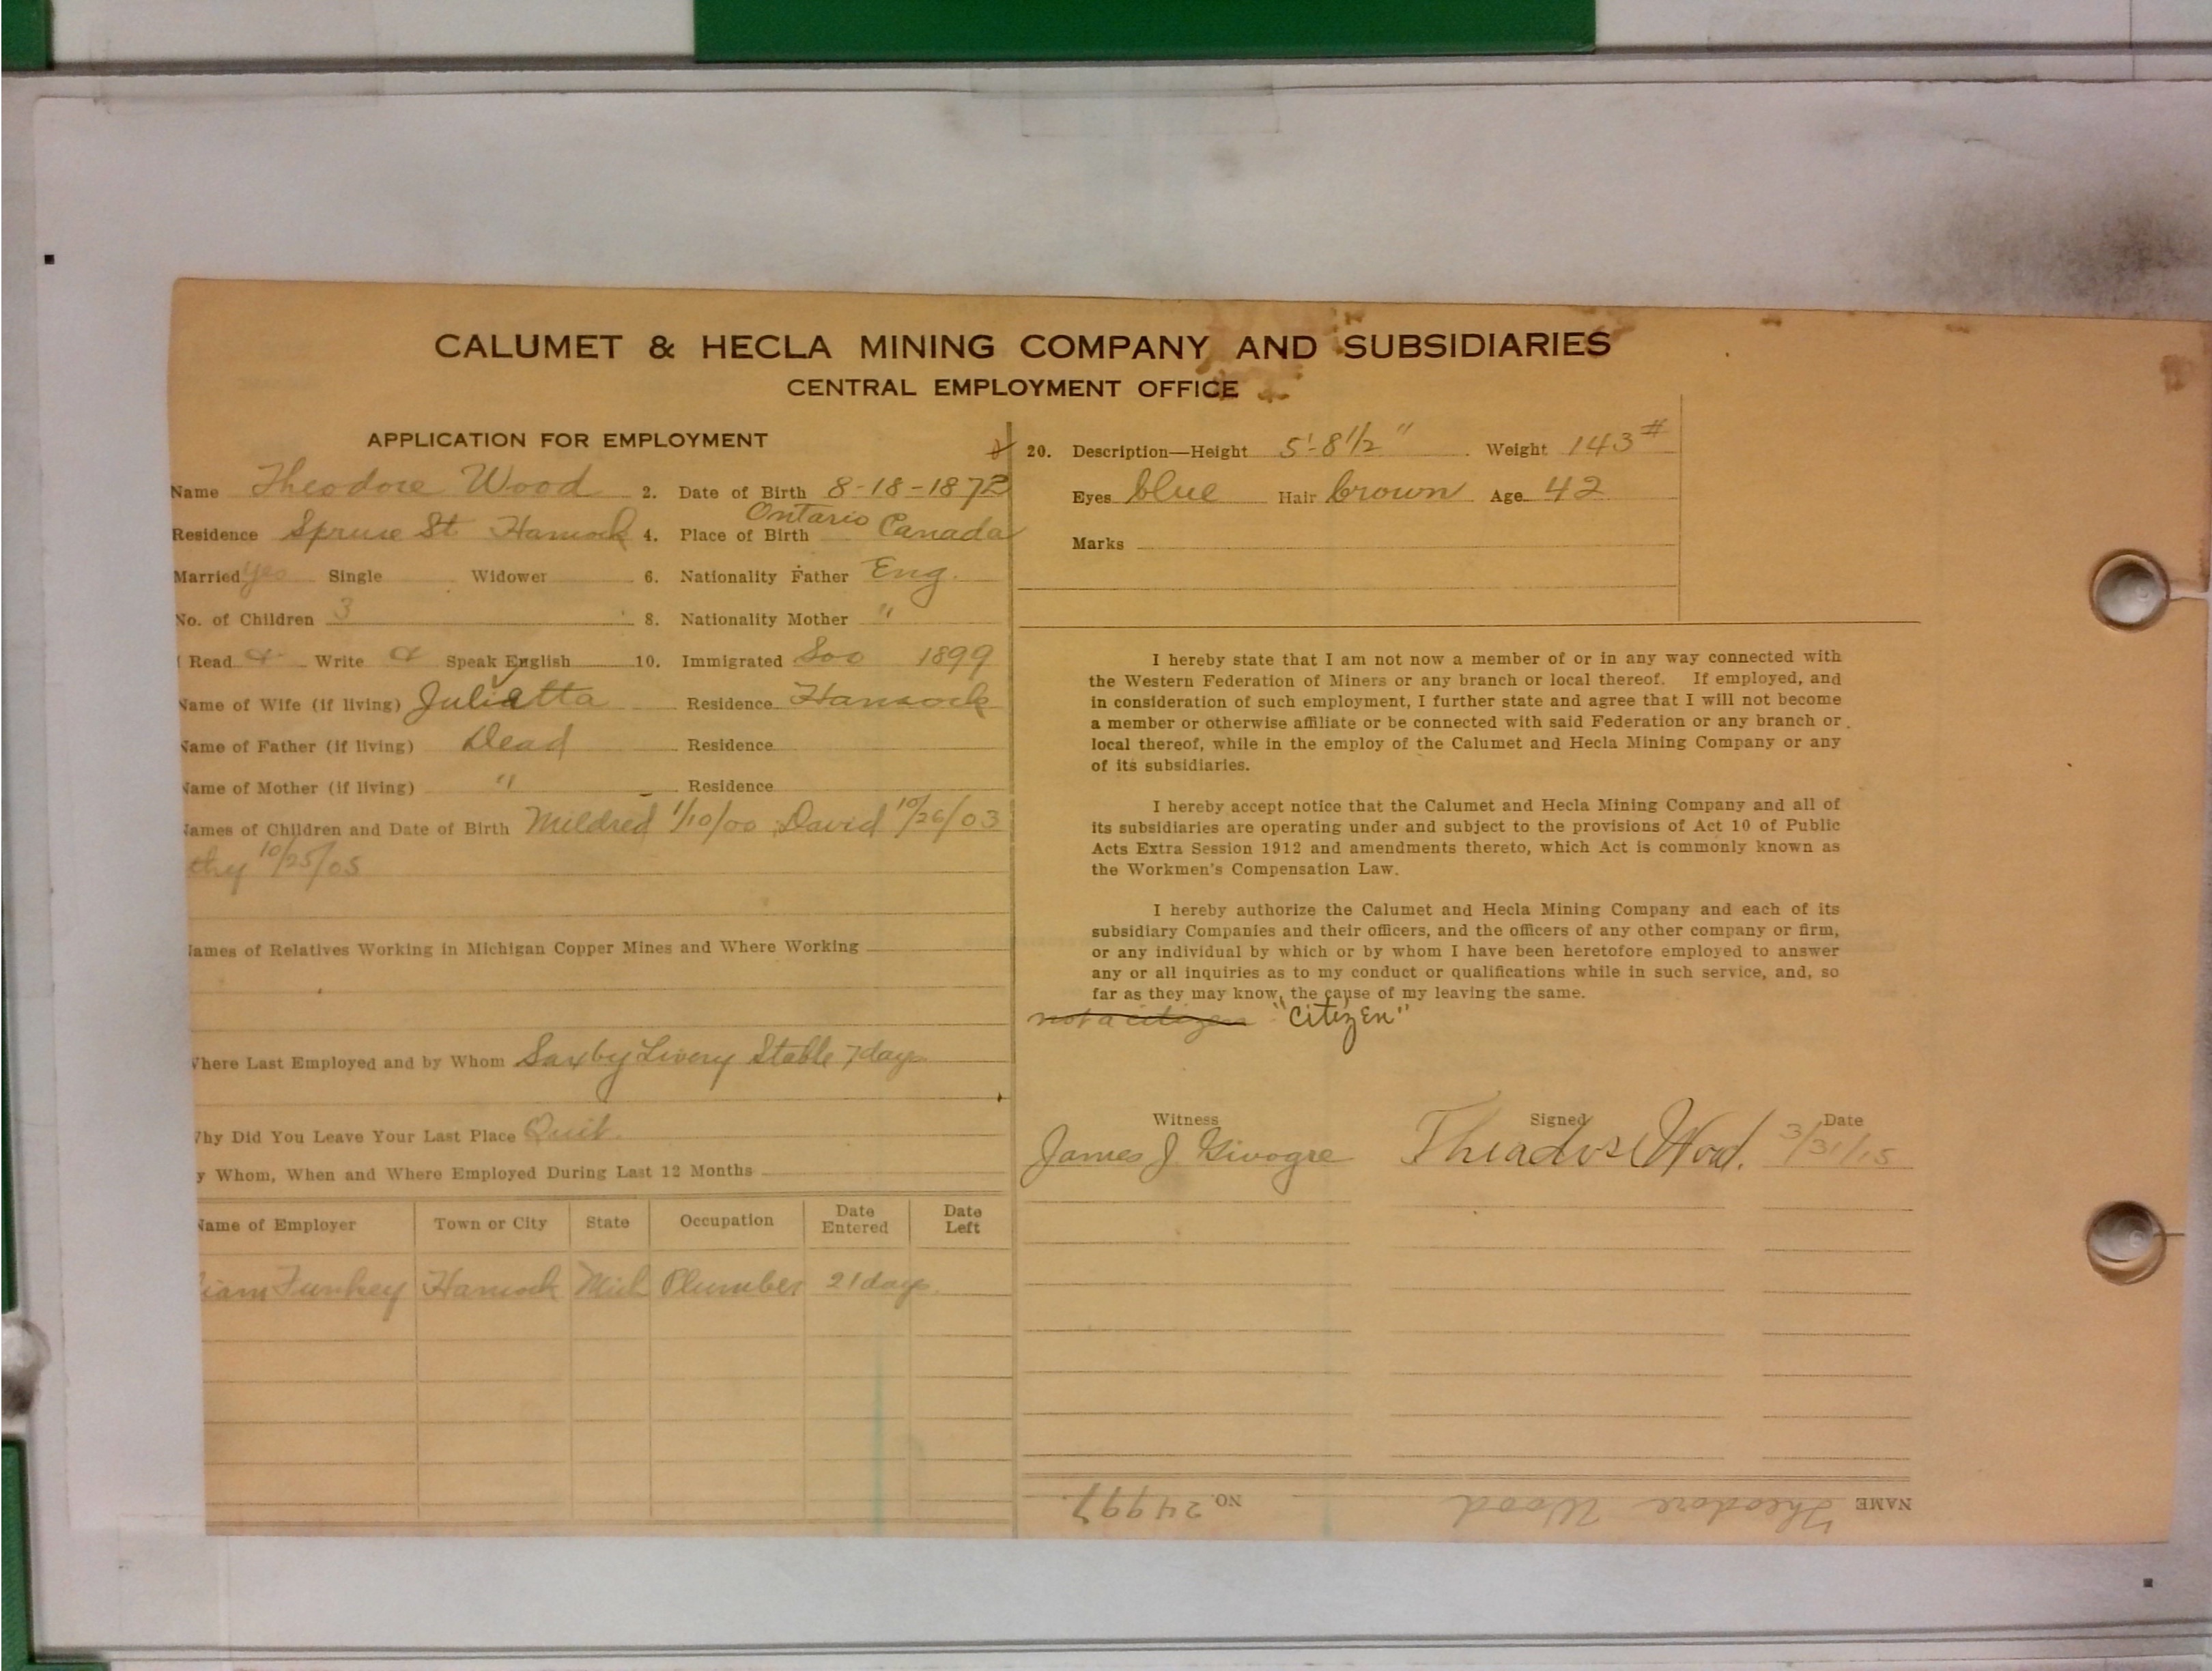 CALUMET & HECLA MINING COMPANY AND SUBSIDIARIES
CENTRAL EMPLOYMENT OFFICE
APPLICATION FOR EMPLOYMENT
Name Theodore Wood 2. Date of Birth 8-18-1872
Residence Spruce St. Hancock 4. Place of Birth Ontario Canada
Married yes Single Widower 6. Nationality Father Eng.
No. of Children 3 8. Nationality Mother "
Read Write Speak English 10. Immigrated Soo 1899
Name of Wife (if living) Julietta Residence Hancock
Name of Father (if living) Dead Residence
Name of Mother (if living) " Residence
Names of Children and Date of Birth Mildred 1/10/00 David 10/26/03
thy 10/25/05
Names of Relatives Working in Michigan Copper Mines and Where Working
Where Last Employed and by Whom Saxby Livery Stable 7 days
Why Did You Leave Your Last Place Quit.
y Whom, When and Where Employed During Last 12 Months
Name of Employer Town or City State Occupation Date Entered Date Left
iam Funkey Hancock Mich Plumber 21 days.
20. Description—Height 5'-8 1/2" Weight 143#
Eyes blue Hair brown Age 42
Marks
I hereby state that I am not now a member of or in any way connected with
the Western Federation of Miners or any branch or local thereof. If employed, and
in consideration of such employment, I further state and agree that I will not become
a member or otherwise affiliate or be connected with said Federation or any branch or
local thereof, while in the employ of the Calumet and Hecla Mining Company or any
of its subsidiaries.
I hereby accept notice that the Calumet and Hecla Mining Company and all of
its subsidiaries are operating under and subject to the provisions of Act 10 of Public
Acts Extra Session 1912 and amendments thereto, which Act is commonly known as
the Workmen's Compensation Law.
I hereby authorize the Calumet and Hecla Mining Company and each of its
subsidiary Companies and their officers, and the officers of any other company or firm,
or any individual by which or by whom I have been heretofore employed to answer
any or all inquiries as to my conduct or qualifications while in such service, and, so
far as they may know, the cause of my leaving the same.
not a citizen "Citizen"
Witness Signed Date
James J. Theadore Wood. 3/31/15
NAME Theodore Wood NO. 24997